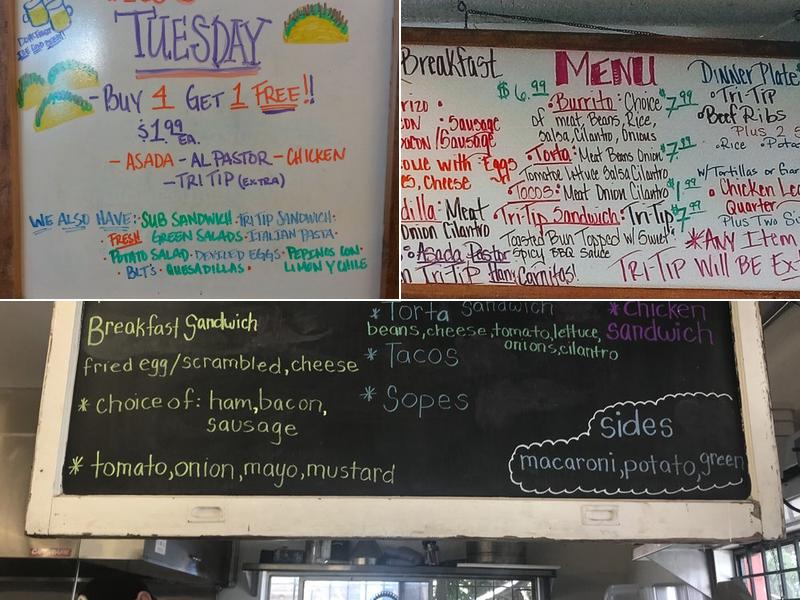 TUESDAY
- BUY 4 GET 1 FREE!!
$1.99 EA.
- ASADA - AL PASTOR - CHICKEN
- TRI TIP (EXTRA)
WE ALSO HAVE: SUB SANDWICH · TRI TIP SANDWICH ·
FRESH GREEN SALADS · ITALIAN PASTA ·
POTATO SALAD · DEVILED EGGS · PEPINOS CON
· BLT'S · QUESADILLAS · LIMON Y CHILE
Breakfast
MENU
$6.99
· Burrito: Choice $7.99
of meat, Beans, Rice,
Salsa, Cilantro, Onions
· Torta: Meat Beans Onion $7.99
Tomatoe Lettuce Salsa Cilantro
· Tacos: Meat Onion Cilantro $1.99
· Tri-Tip Sandwich: Tri-Tip $7.99
Toasted Bun Topped w/ Sweet
Spicy BBQ Sauce
· Sausage
/Sausage
with Eggs
Cheese
Meat
Onion Cilantro
· Asada Pastor
Tri-Tip Ham Carnitas!
Dinner Plate
· Tri-Tip
· Beef Ribs
Plus 2
· Rice
w/ Tortillas or
· Chicken
Quarter
Plus Two
*Any Item
TRI-TIP Will BE
Breakfast Sandwich
fried egg/scrambled, cheese
* choice of: ham, bacon,
sausage
* tomato, onion, mayo, mustard
* Torta Sandwich
beans, cheese, tomato, lettuce,
onions, cilantro
* Tacos
* Sopes
* Chicken
sandwich
sides
macaroni, potato, green